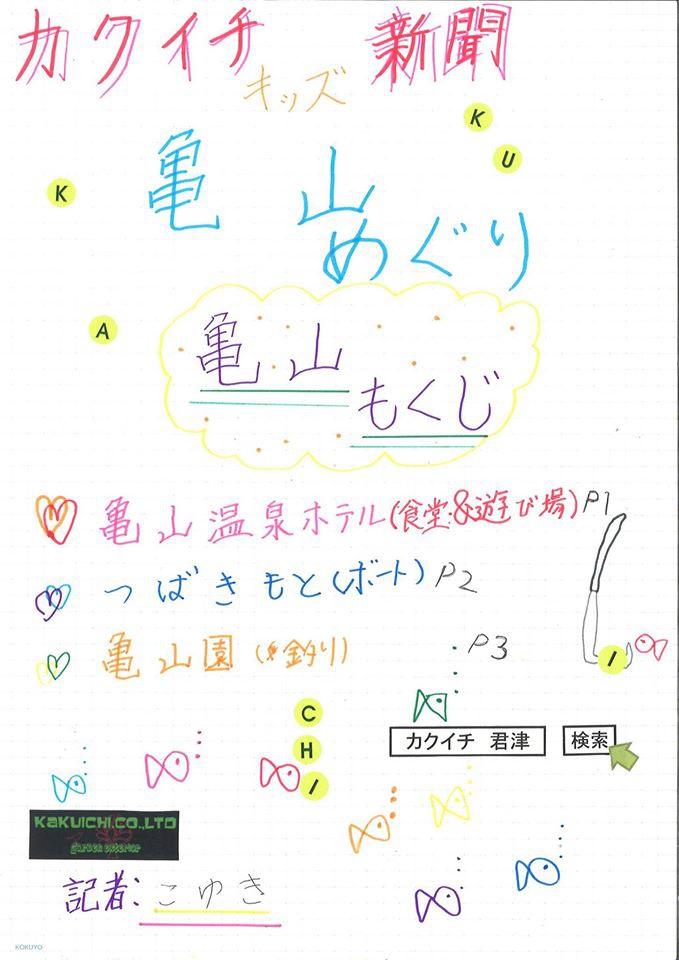 カクイチ 新聞
キッズ
亀山
めぐり
K
U
K
A
亀山
もくじ
亀山温泉ホテル(食堂&遊び場)P1
つばきもと(ボート)P2
亀山園(釣り)P3
I
C
H
I
カクイチ 君津 検索
KAKUICHI.CO.,LTD
garden exterior
記者:こゆき
KOKUYO